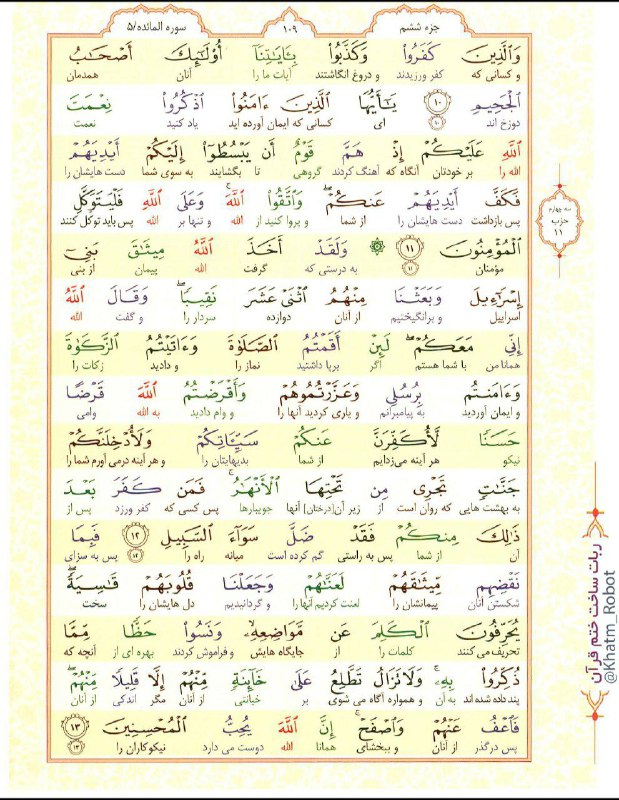 جزء ششم
۱۰۹
سوره المائده/۵
وَالَّذِينَ كَفَرُوا۟ وَكَذَّبُوا۟ بِـَٔايَـٰتِنَآ أُو۟لَـٰٓئِكَ أَصْحَـٰبُ
و کسانی که کفر ورزیدند و دروغ انگاشتند آیات ما را آنان همدمان
ٱلْجَحِيمِ ۱۰ يَـٰٓأَيُّهَا ٱلَّذِينَ ءَامَنُوا۟ ٱذْكُرُوا۟ نِعْمَتَ
دوزخ اند ۱۰ ای کسانی که ایمان آورده اید یاد کنید نعمت
ٱللَّهِ عَلَيْكُمْ إِذْ هَمَّ قَوْمٌ أَن يَبْسُطُوٓا۟ إِلَيْكُمْ أَيْدِيَهُمْ
الله را بر خودتان آنگاه که آهنگ کردند گروهی تا بگشایند به سوی شما دست هایشان را
فَكَفَّ أَيْدِيَهُمْ عَنكُمْ ۖ وَٱتَّقُوا۟ ٱللَّهَ ۚ وَعَلَى ٱللَّهِ فَلْيَتَوَكَّلِ
پس بازداشت دست هایشان را از شما و پروا کنید از الله و تنها بر الله پس باید توکل کنند
ٱلْمُؤْمِنُونَ ۱۱ ۞ وَلَقَدْ أَخَذَ ٱللَّهُ مِيثَـٰقَ بَنِىٓ
مؤمنان ۱۱ به درستی که گرفت الله پیمان از بنی
إِسْرَٰٓءِيلَ وَبَعَثْنَا مِنْهُمُ ٱثْنَىْ عَشَرَ نَقِيبًا ۖ وَقَالَ ٱللَّهُ
اسراییل و برانگیختیم از آنان دوازده سردار را و گفت الله
إِنِّى مَعَكُمْ ۖ لَئِنْ أَقَمْتُمُ ٱلصَّلَوٰةَ وَءَاتَيْتُمُ ٱلزَّكَوٰةَ
همانا من با شما هستم اگر برپا داشتید نماز را و دادید زکات را
وَءَامَنتُم بِرُسُلِى وَعَزَّرْتُمُوهُمْ وَأَقْرَضْتُمُ ٱللَّهَ قَرْضًا
و ایمان آوردید به پیامبرانم و یاری کردید آنها را و وام دادید به الله وامی
حَسَنًا لَّأُكَفِّرَنَّ عَنكُمْ سَيِّـَٔاتِكُمْ وَلَأُدْخِلَنَّكُمْ
نیکو هر آینه می‌زدایم از شما بدیهایتان را و هر آینه درمی آورم شما را
جَنَّـٰتٍ تَجْرِى مِن تَحْتِهَا ٱلْأَنْهَـٰرُ ۚ فَمَن كَفَرَ بَعْدَ
به بهشت هایی که روان است از زیر آن[درختان] آنها جویبارها پس کسی که کفر ورزد پس از
ذَٰلِكَ مِنكُمْ فَقَدْ ضَلَّ سَوَآءَ ٱلسَّبِيلِ ۱۲ فَبِمَا
آن از شما پس به راستی گم کرده است میانه راه را ۱۲ پس به سزای
نَقْضِهِم مِّيثَـٰقَهُمْ لَعَنَّـٰهُمْ وَجَعَلْنَا قُلُوبَهُمْ قَـٰسِيَةً ۖ
شکستن آنان پیمانشان را لعنت کردیم آنها را و گردانیدیم دل هایشان را سخت
يُحَرِّفُونَ ٱلْكَلِمَ عَن مَّوَاضِعِهِۦ ۙ وَنَسُوا۟ حَظًّا مِّمَّا
تحریف می کنند کلمات را از جایگاه هایش و فراموش کردند بهره ای از آنچه که
ذُكِّرُوا۟ بِهِۦ ۚ وَلَا تَزَالُ تَطَّلِعُ عَلَىٰ خَآئِنَةٍ مِّنْهُمْ إِلَّا قَلِيلًا مِّنْهُمْ ۖ
پند داده شده اند به آن و همواره آگاه می شوی بر خیانتی از آنان مگر اندکی از آنان
فَٱعْفُ عَنْهُمْ وَٱصْفَحْ ۚ إِنَّ ٱللَّهَ يُحِبُّ ٱلْمُحْسِنِينَ ۱۳
پس درگذر از آنان و ببخشای همانا الله دوست می دارد نیکوکاران را ۱۳
سه چهارم
حزب
۱۱
ربات ساخت ختم قرآن
@Khatm_Robot